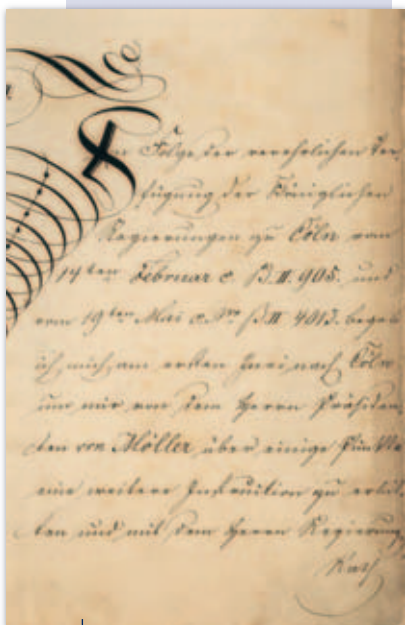 In Folge der verehrlichen Ver,
fügung der Königlichen
Regierungen zu Cöln vom
14ten Februar c. B. II. 905. und
vom 19ten Mai c. B. II 4013. begab
ich mich am ersten Juni nach Cöln
um mir von dem Herrn Präsiden,
ten von Möller über einige Punkte
eine weitere Instruction zu erbit,
ten und mit dem Herrn Regierung
Rath